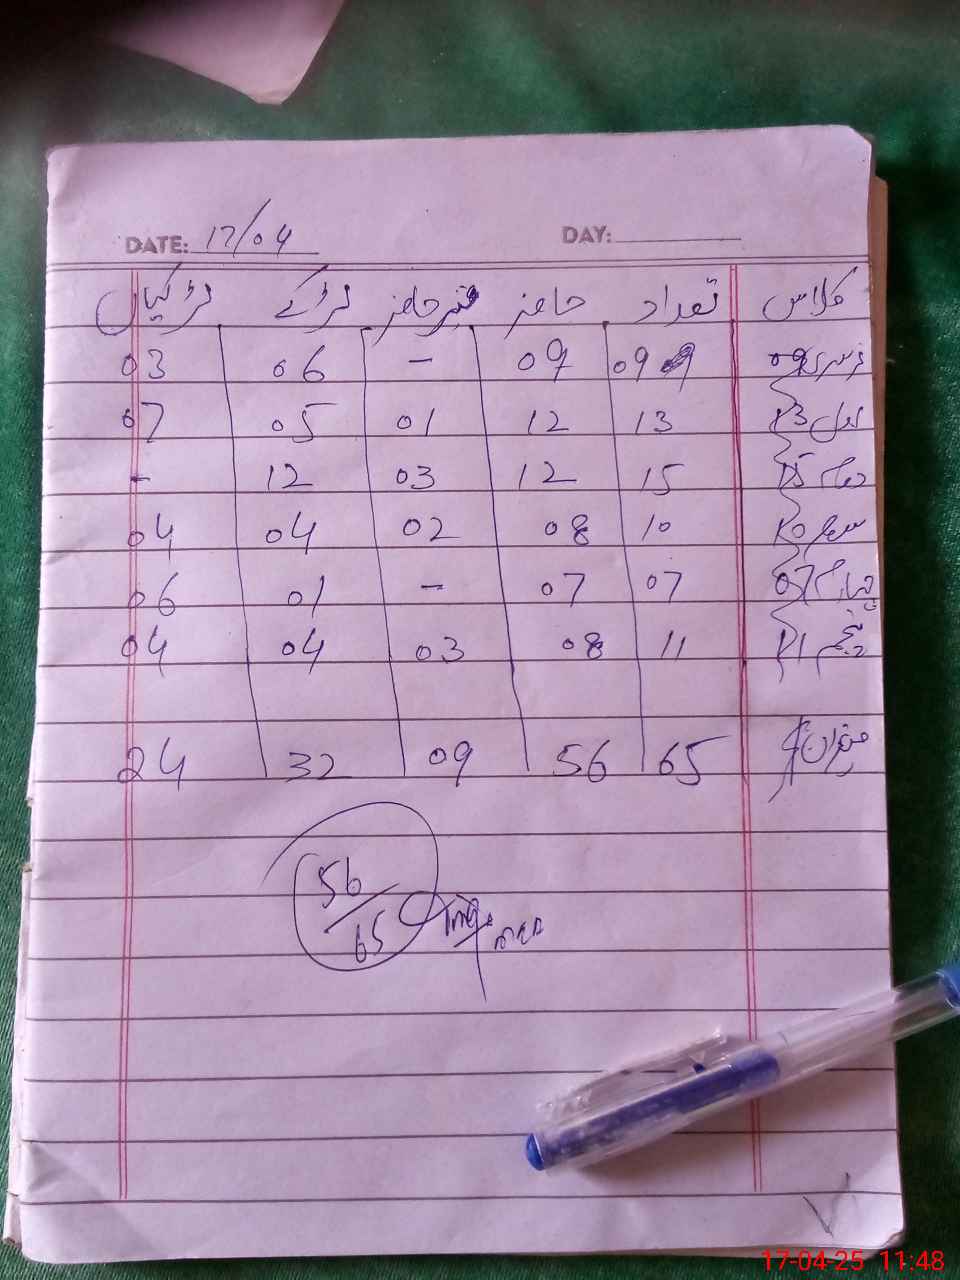 DATE: 17/04 DAY:
کلاس تعداد حاضر غیر حاضر لڑکے لڑکیاں
نرسری 09 09 09 - 06 03
اول 13 13 12 01 05 07
دوم 15 15 12 03 12 -
سوم 10 10 08 02 04 04
چہارم 07 07 07 - 01 06
پنجم 11 11 08 03 04 04
میزان 65 56 09 32 24
56/65
17-04-25 11:48